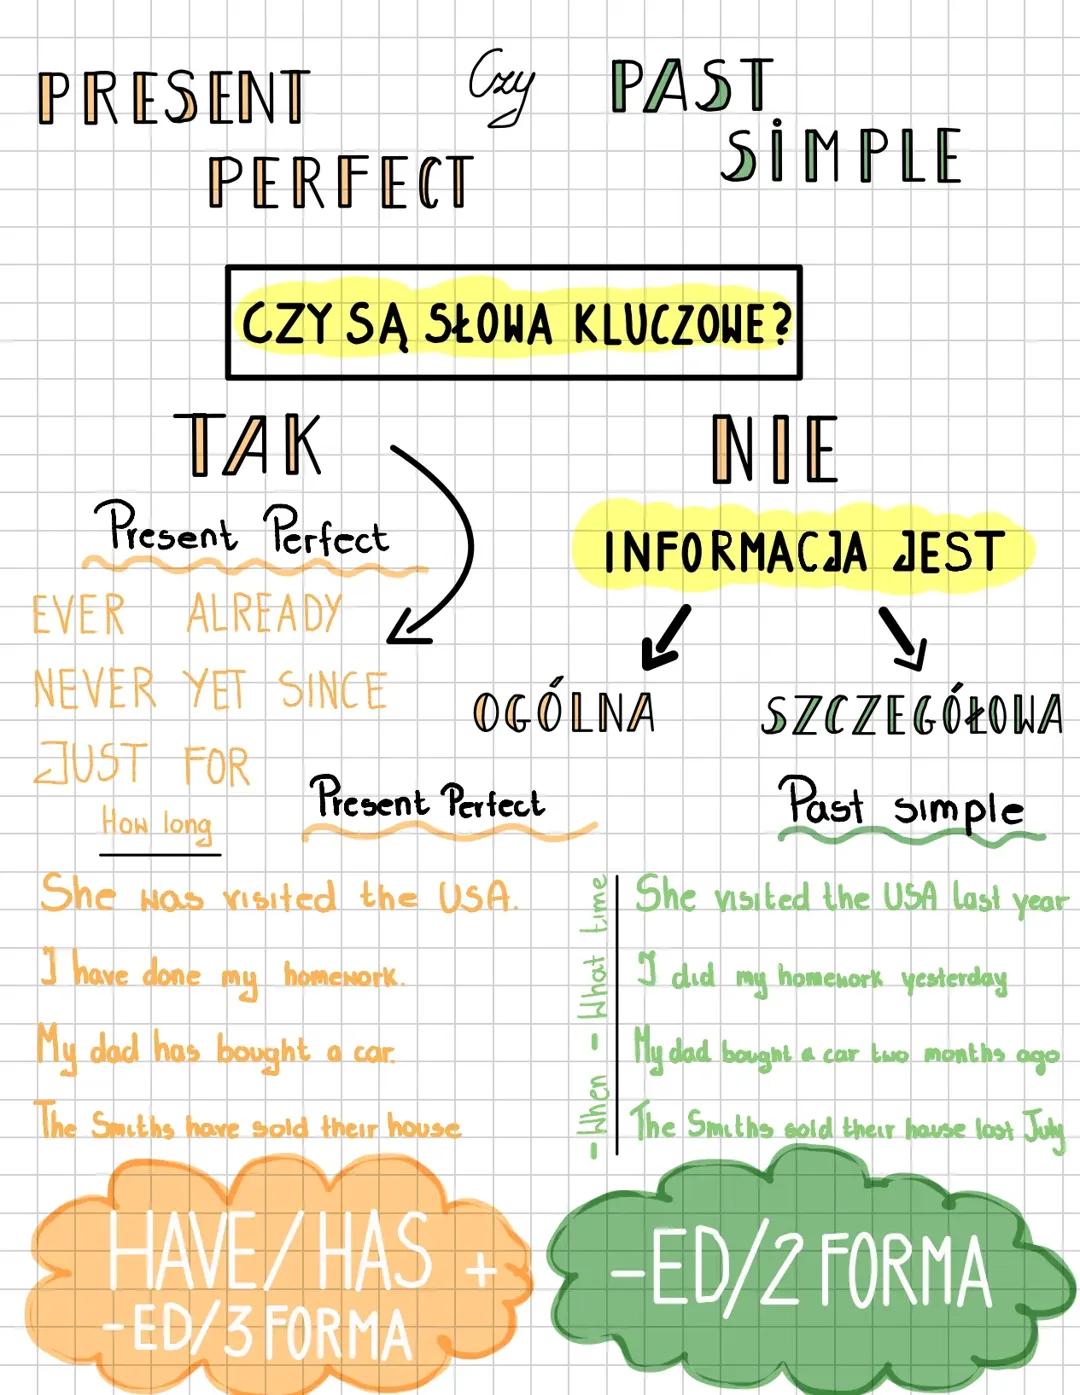 PRESENT PERFECT
Czy
PAST SIMPLE
CZY SĄ SŁOWA KLUCZOWE?
TAK
Present Perfect
EVER ALREADY
NEVER YET SINCE
JUST FOR
How long
NIE
INFORMACJA JEST
OGÓLNA
Present Perfect
SZCZEGÓŁOWA
Past simple
She was visited the USA.
I have done my homework.
My dad has bought a car.
The Smiths have sold their house
- When - What time
She visited the USA last year
I did my homework yesterday
My dad bought a car two months ago
The Smiths sold their house last July
HAVE/HAS +
-ED/3 FORMA
-ED/2 FORMA